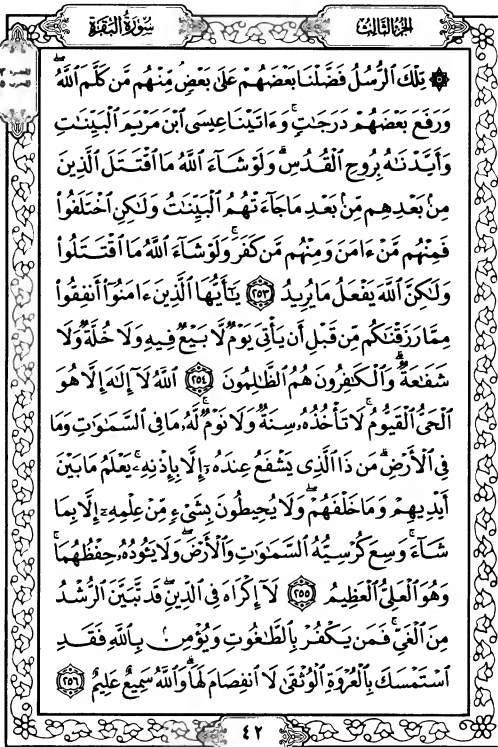 سُورَةُ البَقَرَةِ الجُزْءُ الثَّالِثُ
۞ تِلْكَ ٱلرُّسُلُ فَضَّلْنَا بَعْضَهُمْ عَلَىٰ بَعْضٍۘ مِّنْهُم مَّن كَلَّمَ ٱللَّهُۖ
وَرَفَعَ بَعْضَهُمْ دَرَجَٰتٍۚ وَءَاتَيْنَا عِيسَى ٱبْنَ مَرْيَمَ ٱلْبَيِّنَٰتِ
وَأَيَّدْنَٰهُ بِرُوحِ ٱلْقُدُسِۗ وَلَوْ شَآءَ ٱللَّهُ مَا ٱقْتَتَلَ ٱلَّذِينَ
مِنۢ بَعْدِهِم مِّنۢ بَعْدِ مَا جَآءَتْهُمُ ٱلْبَيِّنَٰتُ وَلَٰكِنِ ٱخْتَلَفُوا۟
فَمِنْهُم مَّنْ ءَامَنَ وَمِنْهُم مَّن كَفَرَۚ وَلَوْ شَآءَ ٱللَّهُ مَا ٱقْتَتَلُوا۟
وَلَٰكِنَّ ٱللَّهَ يَفْعَلُ مَا يُرِيدُ ٢٥٣ يَٰٓأَيُّهَا ٱلَّذِينَ ءَامَنُوٓا۟ أَنفِقُوا۟
مِمَّا رَزَقْنَٰكُم مِّن قَبْلِ أَن يَأْتِىَ يَوْمٌ لَّا بَيْعٌ فِيهِ وَلَا خُلَّةٌ وَلَا
شَفَٰعَةٌۗ وَٱلْكَٰفِرُونَ هُمُ ٱلظَّٰلِمُونَ ٢٥٤ ٱللَّهُ لَآ إِلَٰهَ إِلَّا هُوَ
ٱلْحَىُّ ٱلْقَيُّومُۚ لَا تَأْخُذُهُۥ سِنَةٌ وَلَا نَوْمٌۚ لَّهُۥ مَا فِى ٱلسَّمَٰوَٰتِ وَمَا
فِى ٱلْأَرْضِۗ مَن ذَا ٱلَّذِى يَشْفَعُ عِندَهُۥٓ إِلَّا بِإِذْنِهِۦۚ يَعْلَمُ مَا بَيْنَ
أَيْدِيهِمْ وَمَا خَلْفَهُمْۖ وَلَا يُحِيطُونَ بِشَىْءٍ مِّنْ عِلْمِهِۦٓ إِلَّا بِمَا
شَآءَۚ وَسِعَ كُرْسِيُّهُ ٱلسَّمَٰوَٰتِ وَٱلْأَرْضَۖ وَلَا يَـُٔودُهُۥ حِفْظُهُمَاۚ
وَهُوَ ٱلْعَلِىُّ ٱلْعَظِيمُ ٢٥٥ لَآ إِكْرَاهَ فِى ٱلدِّينِۖ قَد تَّبَيَّنَ ٱلرُّشْدُ
مِنَ ٱلْغَىِّۚ فَمَن يَكْفُرْ بِٱلطَّٰغُوتِ وَيُؤْمِنۢ بِٱللَّهِ فَقَدِ
ٱسْتَمْسَكَ بِٱلْعُرْوَةِ ٱلْوُثْقَىٰ لَا ٱنفِصَامَ لَهَاۗ وَٱللَّهُ سَمِيعٌ عَلِيمٌ ٢٥٦
٤٢